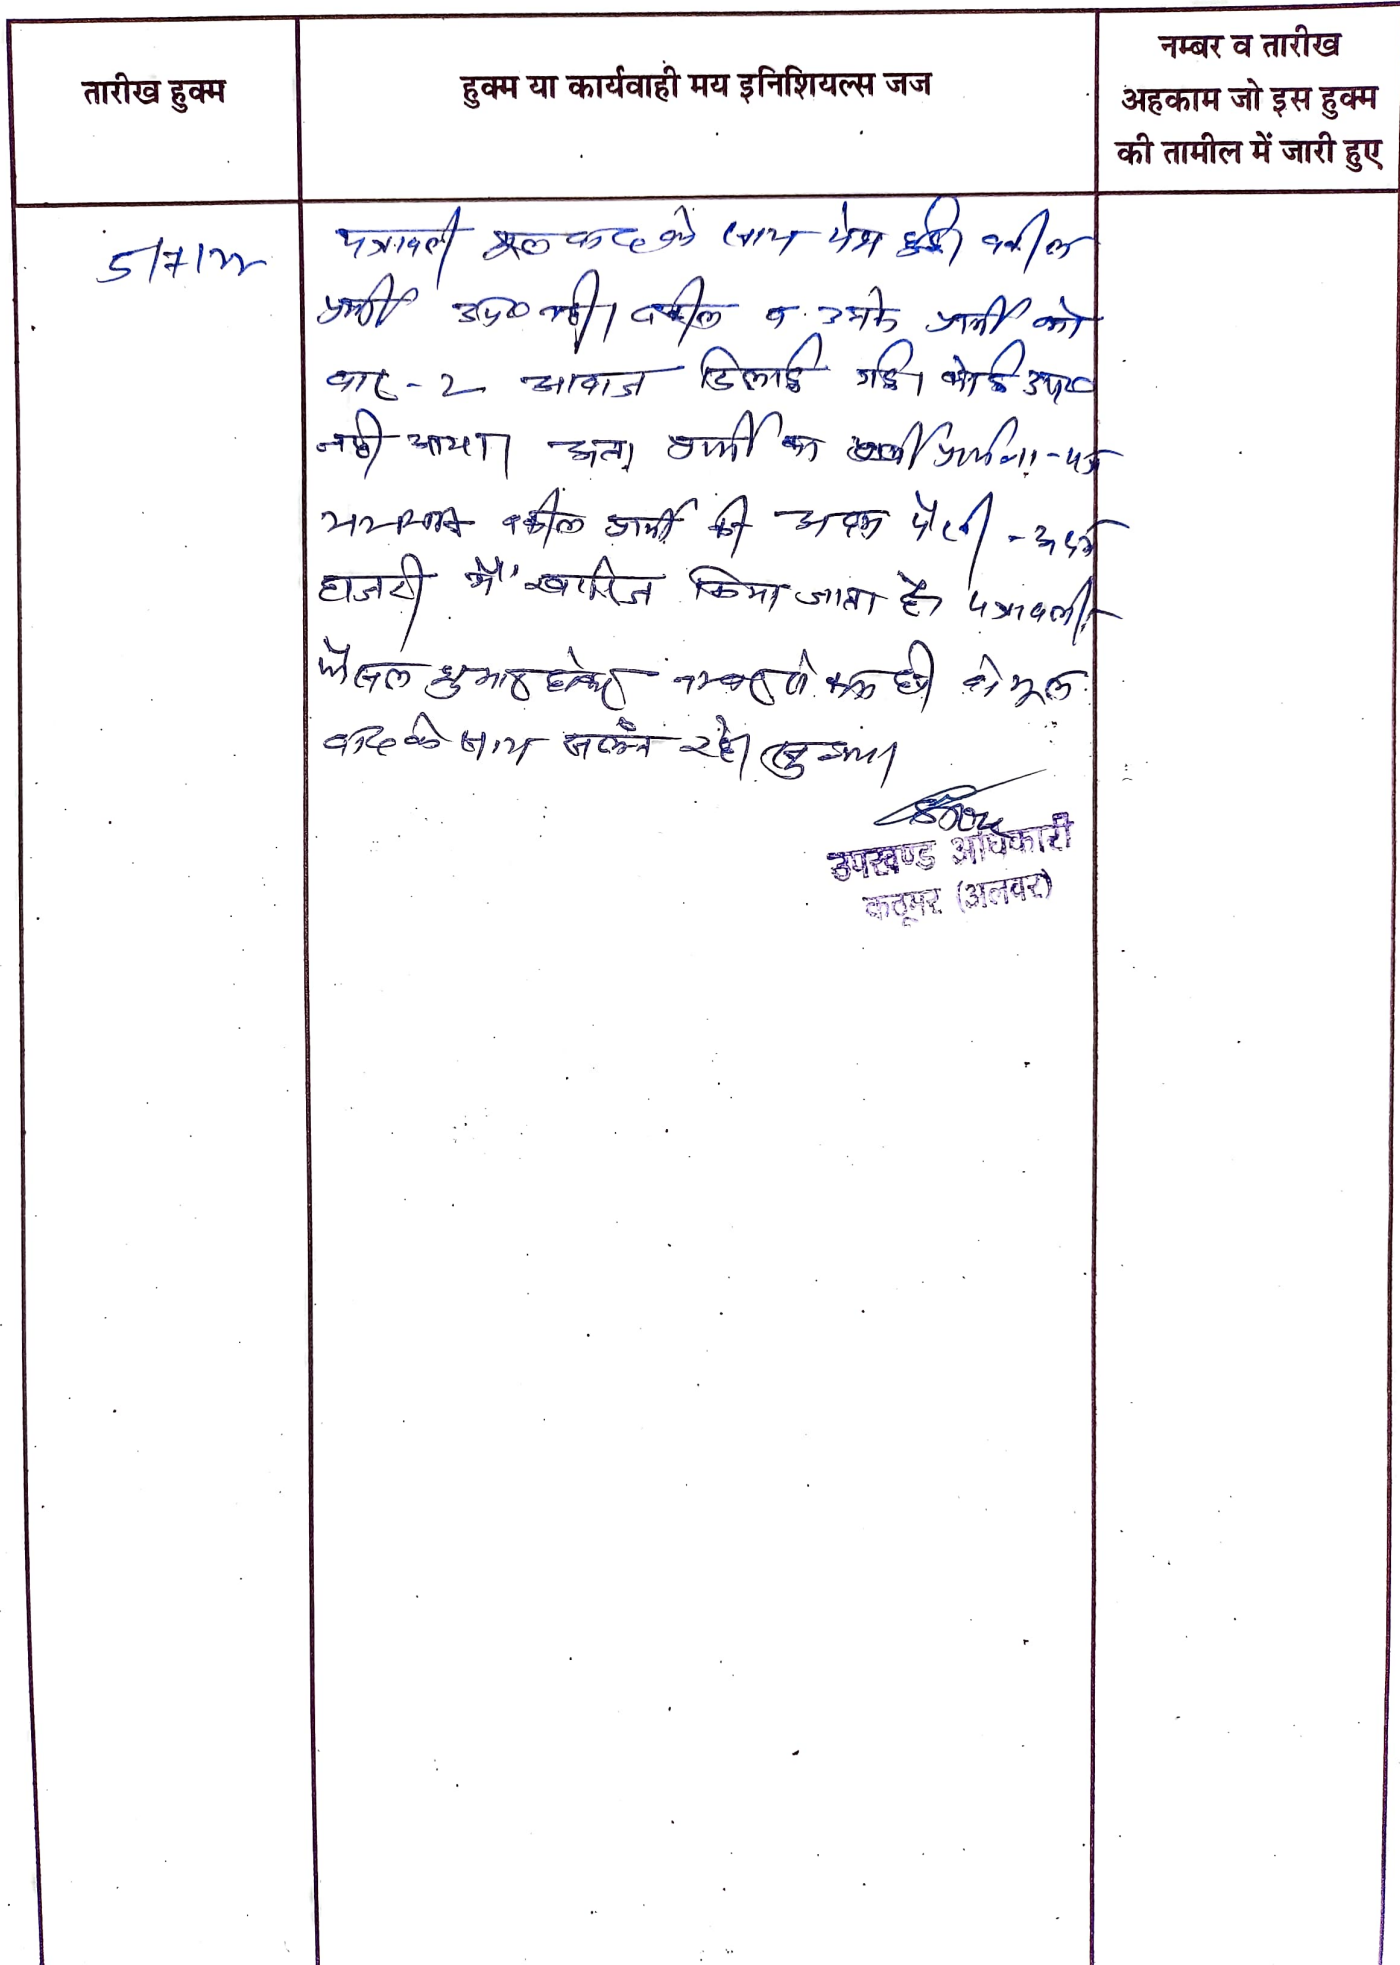 तारीख हुक्म
हुक्म या कार्यवाही मय इनिशियल्स जज
नम्बर व तारीख
अहकाम जो इस हुक्म
की तामील में जारी हुए
5/7/22
पत्रावली मूल वाद के साथ पेश हुई। वकील
प्रार्थी उप० नहीं। वकील व उसके प्रार्थी को
बार-2 आवाज दिलाई गई। कोई उप०
नहीं आया। अतः प्रार्थी का प्रार्थना-पत्र
वकील प्रार्थी की अदम पैरवी - अदम
हाजरी में खारिज किया जाता है। पत्रावली
फैसल शुमार होकर नम्बर से कम हो मूल
वाद के साथ संलग्न रहे।
उपखण्ड अधिकारी
कठूमर (अलवर)